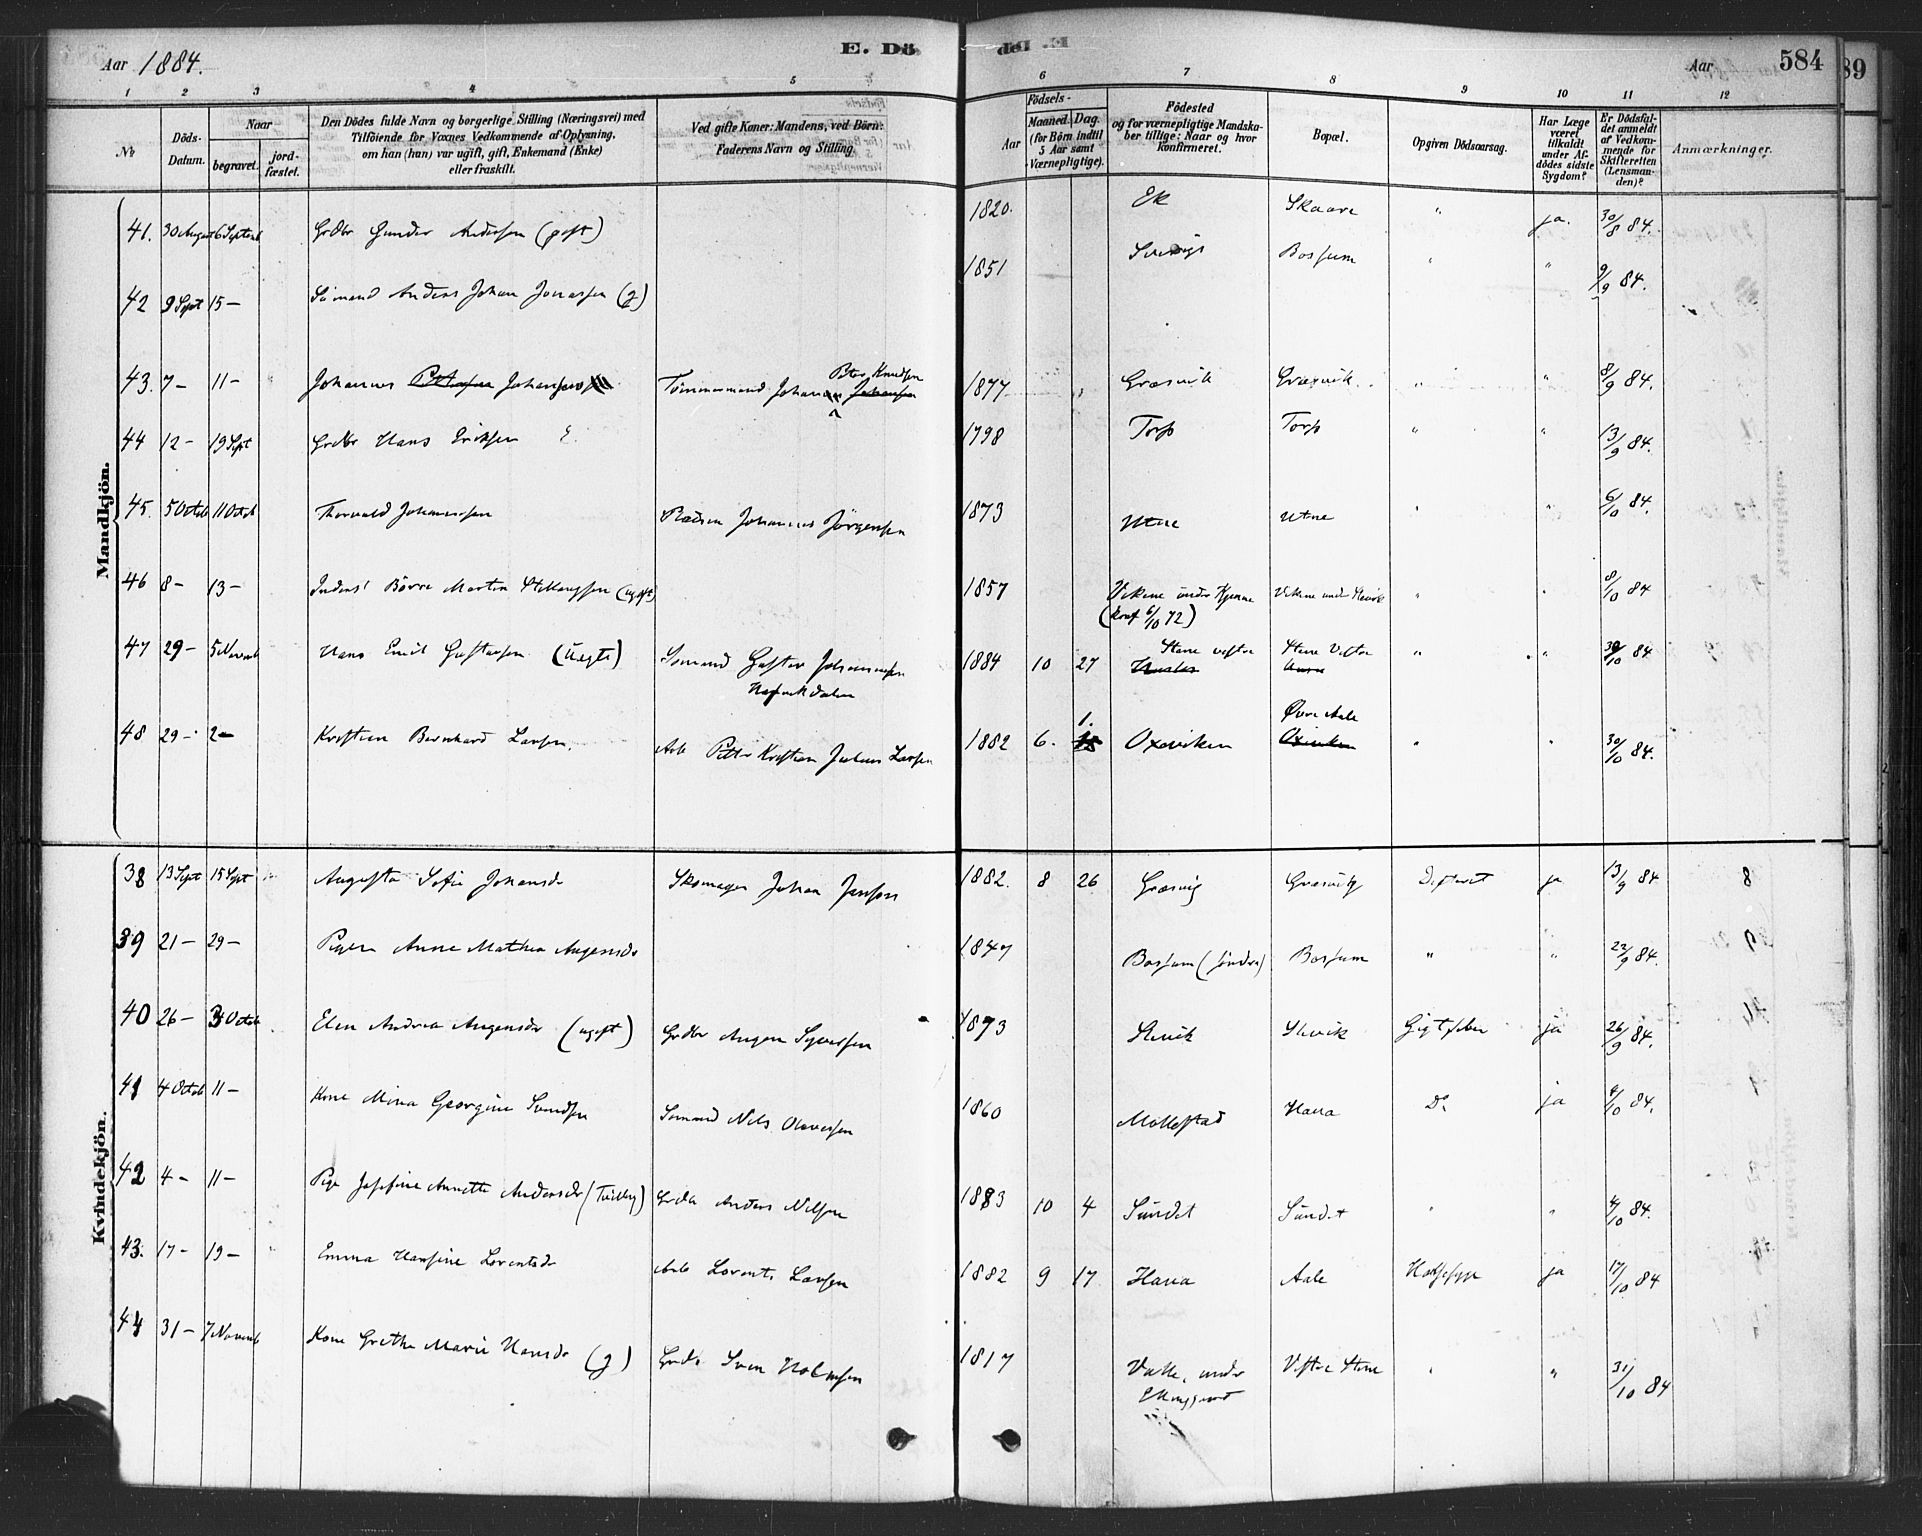 Aar 1884. E. Dö
1 2 3 4 5
Nr. Döds-Datum. Naar begravet. jordfæstet. Den Dödes fulde Navn og borgerlige Stilling (Næringsvei) med Tilföiende for Voxnes Vedkommende af Oplysning, om han (hun) var ugift, gift, Enkemand (Enke) eller fraskilt. Ved gifte Koner: Mandens, ved Börn: Faderens Navn og Stilling.
de. E. Aar 584
89
6 7 8 9 10 11 12
Födsels- Aar Maaned. Dag. (for Börn indtil 5 Aar samt Værnepligtige). Födested og for værnepligtige Mandskaber tillige: Naar og hvor Konfirmeret. Bopæl. Opgiven Dödsaarsag. Har Læge været tilkaldt under Afdödes sidste Sygdom? Er Dödsfaldet anmeldt af Vedkommende for Skifteretten (Lensmanden)? Anmærkninger.
Mandkjön.
41. 30 August 6 Septemb Grdbr Gunder Andersen (gift) 1820. Ek Skaare " ja. 30/8 84.
42 9 Sept 15 – Sömand Anders Johan Jonassen (g) 1851 Bossum " " 9/9 84.
43. 7 – 11 – Johannes Johansen Tömmermand Johan Peter Knudsen 1877 Græsvik Græsvik " " 8/9 84.
44 12 – 19 Sept Grdbr Hans Eriksen E. 1798 Torp Torp " " 13/9 84.
45. 5 Octob 11 Octob Thorvald Johannessen Johannes Jörgensen 1873 Utne Utne " " 6/10 84.
46 8 – 13 – Inders. Börre Martin (ugift) 1857 Vikene under Kjenne (konf 6/10 72) Vikene under Slevik " " 8/10 84
47 29 – 5 Novemb Hans Emil Gustavsen (Uægte) Sömand Gustav Johannessen 1884 10 27 Stene vestre Stene Vestre " " 30/10 84
48 29 – 2 – Kristian Bernhard Larsen. Arb Petter Kristian Julius Larsen 1882 6. 1. Oxeviken Övre Aale " " 30/10 84.
Kvindekjön.
38 13 Sept 15 Sept Augusta Sofie Johansdr Skomager Johan Jensen 1882. 8 26 Græsvig Græsvig Difterit ja 13/9 84 8
39 21 – 29 – Pigen Anne Mathea Augensdr 1847 Bossum (söndre) Bossum " " 22/9 84.
40 26 – 3 Octob Elen Andrea Augensdr (ugift) Grdbr Augen Syversen 1873 Slevik Slevik Gigtfeber ja 26/9 84.
41 4 Octob 11 – Kone Mina Georgine Svendsen Sömand Nils Olavessen 1860 Mollestad Haua Do ja 4/10 84.
42 4 – 11 – Pige Josefine Annette Andersdr (Tvilling) Grdbr Anders Nilsen 1883 10 4 Sundet Sundet " " 4/10 84.
43. 17 – 19 – Emma Hansine Lorentsdr Arb Lorents Larsen 1882 9 17 Haua Aale Halssyge ja 17/10 84
44 31 – 7 Novemb Kone Grethe Marie Hansdr (g) Grdbr Sven Holmsen 1817 Valle, under Elingaard Vestre Stene " " 31/10 84